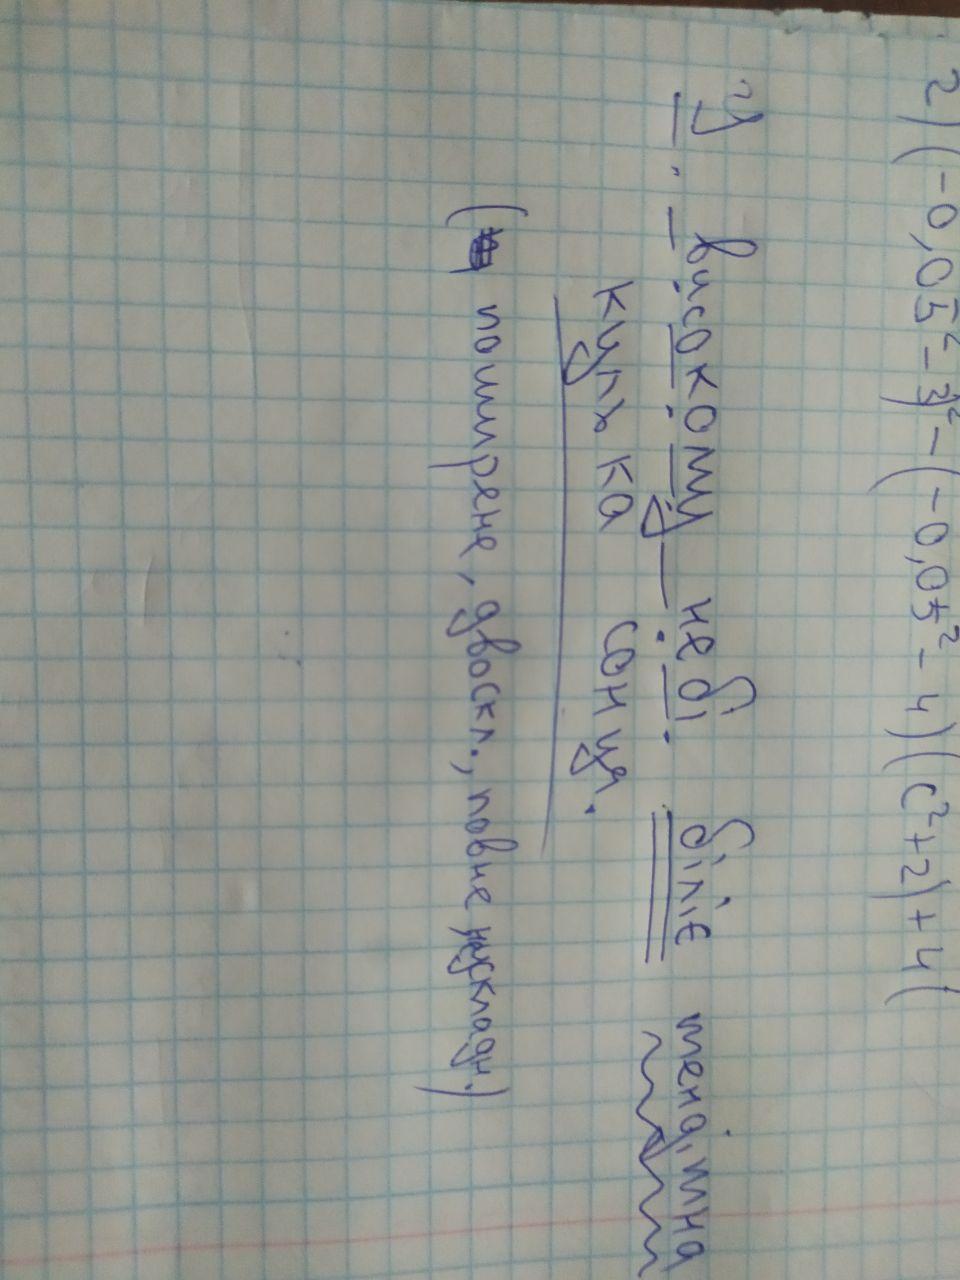 2) (-0,05²-3)²-(-0,05²-4)(c²+2)+4(
У високому небі біліє
кулька сонця.
(поширене, двоскл., повне, неускладн.)